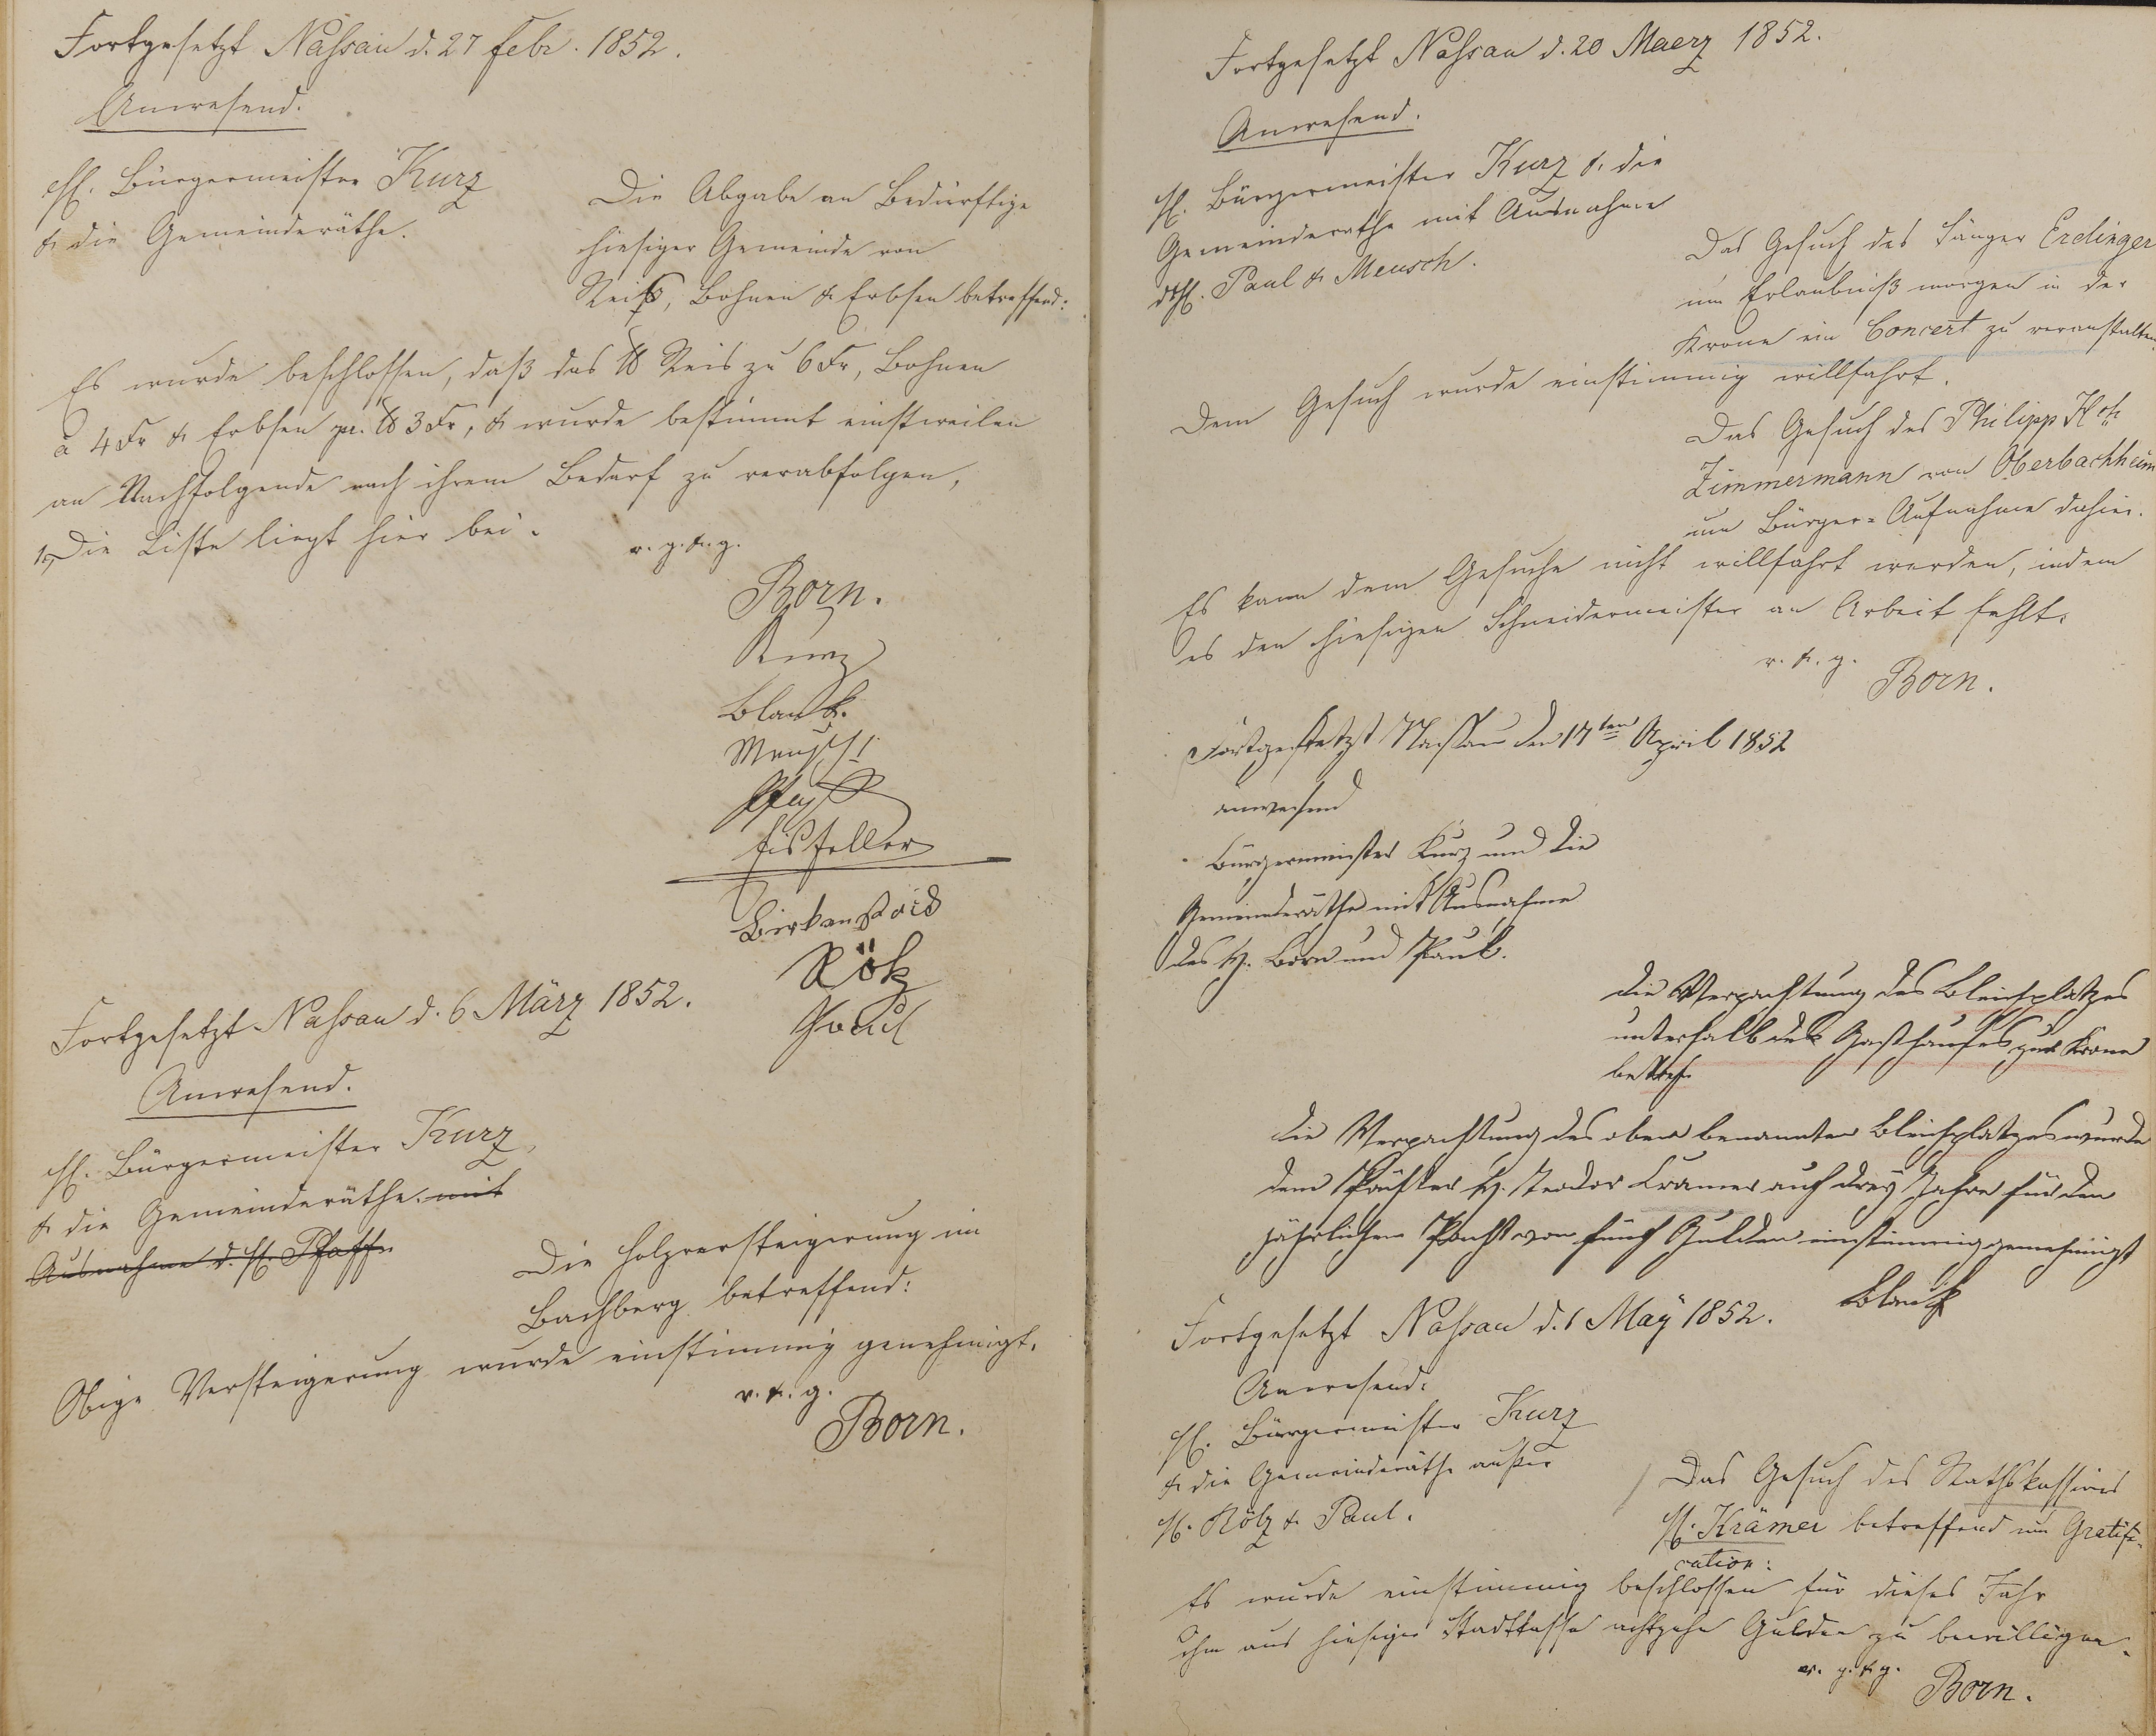 Fortgesetzt Nassau d. 27 Febr. 1852.
Anwesend.
H. Bürgermeister Kurz
& die Gemeinderäthe.
Die Abgabe an Bedürftige
hiesiger Gemeinde von
Reis, Bohnen & Erbsen betreffend:
Es wurde beschlossen, daß das ℔ Reis zu 6 Kr, Bohnen
à 4 Kr & Erbsen pr. ℔ 3 Kr, & wurde bestimmt einstweilen
an Nachfolgende nach ihrem Bedarf zu verabfolgen,
Die Liste liegt hier bei.
v. g. & g.
Born.
Kurz
Blank.
Mensch
Eisfeller
Birkenstock
Rölz
Paul
Fortgesetzt Nassau d. 6 März 1852.
Anwesend.
H. Bürgermeister Kurz,
& die Gemeinderäthe. mit
Ausnahme d. H. Pfaff.
Die Holzversteigerung im
Bachberg betreffend:
Obige Versteigerung wurde einstimmig genehmigt.
v. & g.
Born.
Fortgesetzt Nassau d. 20 Maerz 1852.
Anwesend.
H. Bürgermeister Kurz & die
Gemeinderathe mit Ausnahme
Paul & Mensch.
Das Gesuch des Sänger Erdinger
um Erlaubniß morgen in der
Krone ein Concert zu veranstalten.
Dem Gesuch wurde einstimmig willfahrt.
Das Gesuch des Philipp
Zimmermann von Oberbachheim
um Bürger-Aufnahme dahier.
Es kann dem Gesuche nicht willfahrt werden, indem
es den hiesigen Schneidermeister an Arbeit fehlt.
v. & g.
Born.
Fortgesetzt Nassau den 17ten April 1852
anwesend
Bürgermeister Kurz und die
Gemeinderäthe mit Ausnahme
des H. Born und Paul.
die Verpachtung des Bleichplatzes
unterhalb des Gasthauses zur Krone
betref.
die Verpachtung des oben benannten Bleichplatzes wurde
dem Pächter H. Teodor Cramer auf drey Jahre für den
jährlichen Pacht von fünf Gulden einstimmig genehmigt
Blank
Fortgesetzt Nassau d. 1 May 1852.
Anwesend:
H. Bürgermeister Kurz
& die Gemeinderäthe außer
H. Rölz & Paul.
Das Gesuch des
H. Krämer betreffend um Gratifi-
cation:
Es wurde einstimmig beschlossen für dieses Jahr
ihm aus hiesiger Stadtkasse achtzehn Gulden zu bewilligen.
v. g. & g.
Born.